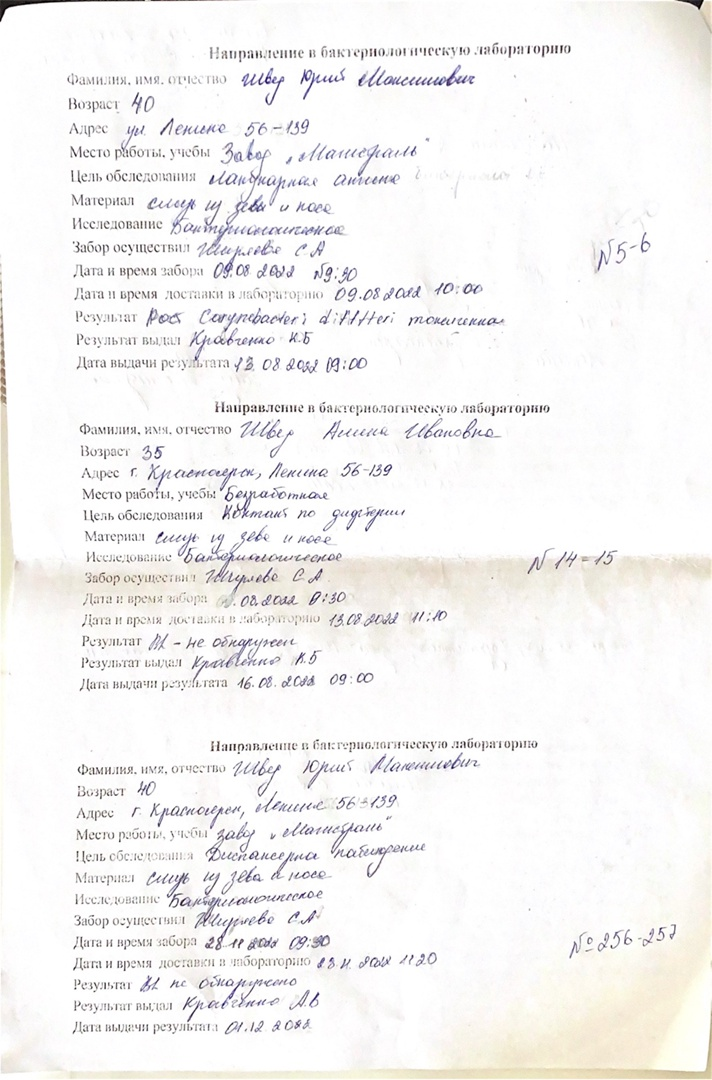 Направление в бактериологическую лабораторию
Фамилия, имя, отчество Швед Юрий Максимович
Возраст 40
Адрес ул. Ленина 56-139
Место работы, учебы Завод „Магистраль"
Цель обследования лакунарная ангина
Материал слизь из зева и носа
Исследование Бактериологическое
Забор осуществил С.А
N5-6
Дата и время забора 09.08.2022 09:30
Дата и время доставки в лабораторию 09.08.2022 10:00
Результат Рост Corynebacteri diftteri токсигенная
Результат выдал Кравченко К.Б
Дата выдачи результата 13.08.2022 09:00
Направление в бактериологическую лабораторию
Фамилия, имя, отчество Швед Алина Ивановна
Возраст 35
Адрес г. Красногорск, Ленина 56-139
Место работы, учебы Безработная
Цель обследования Контакт по дифтерии
Материал слизь из зева и носа
Исследование Бактериологическое
N 14-15
Забор осуществил С.А
Дата и время забора .08.2022 9:30
Дата и время доставки в лабораторию 13.08.2022 11:10
Результат BL - не обнаружен
Результат выдал Кравченко К.Б
Дата выдачи результата 16.08.2022 09:00
Направление в бактериологическую лабораторию
Фамилия, имя, отчество Швед Юрий Максимович
Возраст 40
Адрес г. Красногорск, Ленина 56-139
Место работы, учебы Завод „Магистраль"
Цель обследования Диспансерна наблюдение
Материал слизь из зева и носа
Исследование Бактериологическое
Забор осуществил С.А
Дата и время забора 28.11.2022 09:30
№256-257
Дата и время доставки в лабораторию 28.11.2022 11:20
Результат BL не обнаружено
Результат выдал Кравченко А.В
Дата выдачи результата 01.12.2022